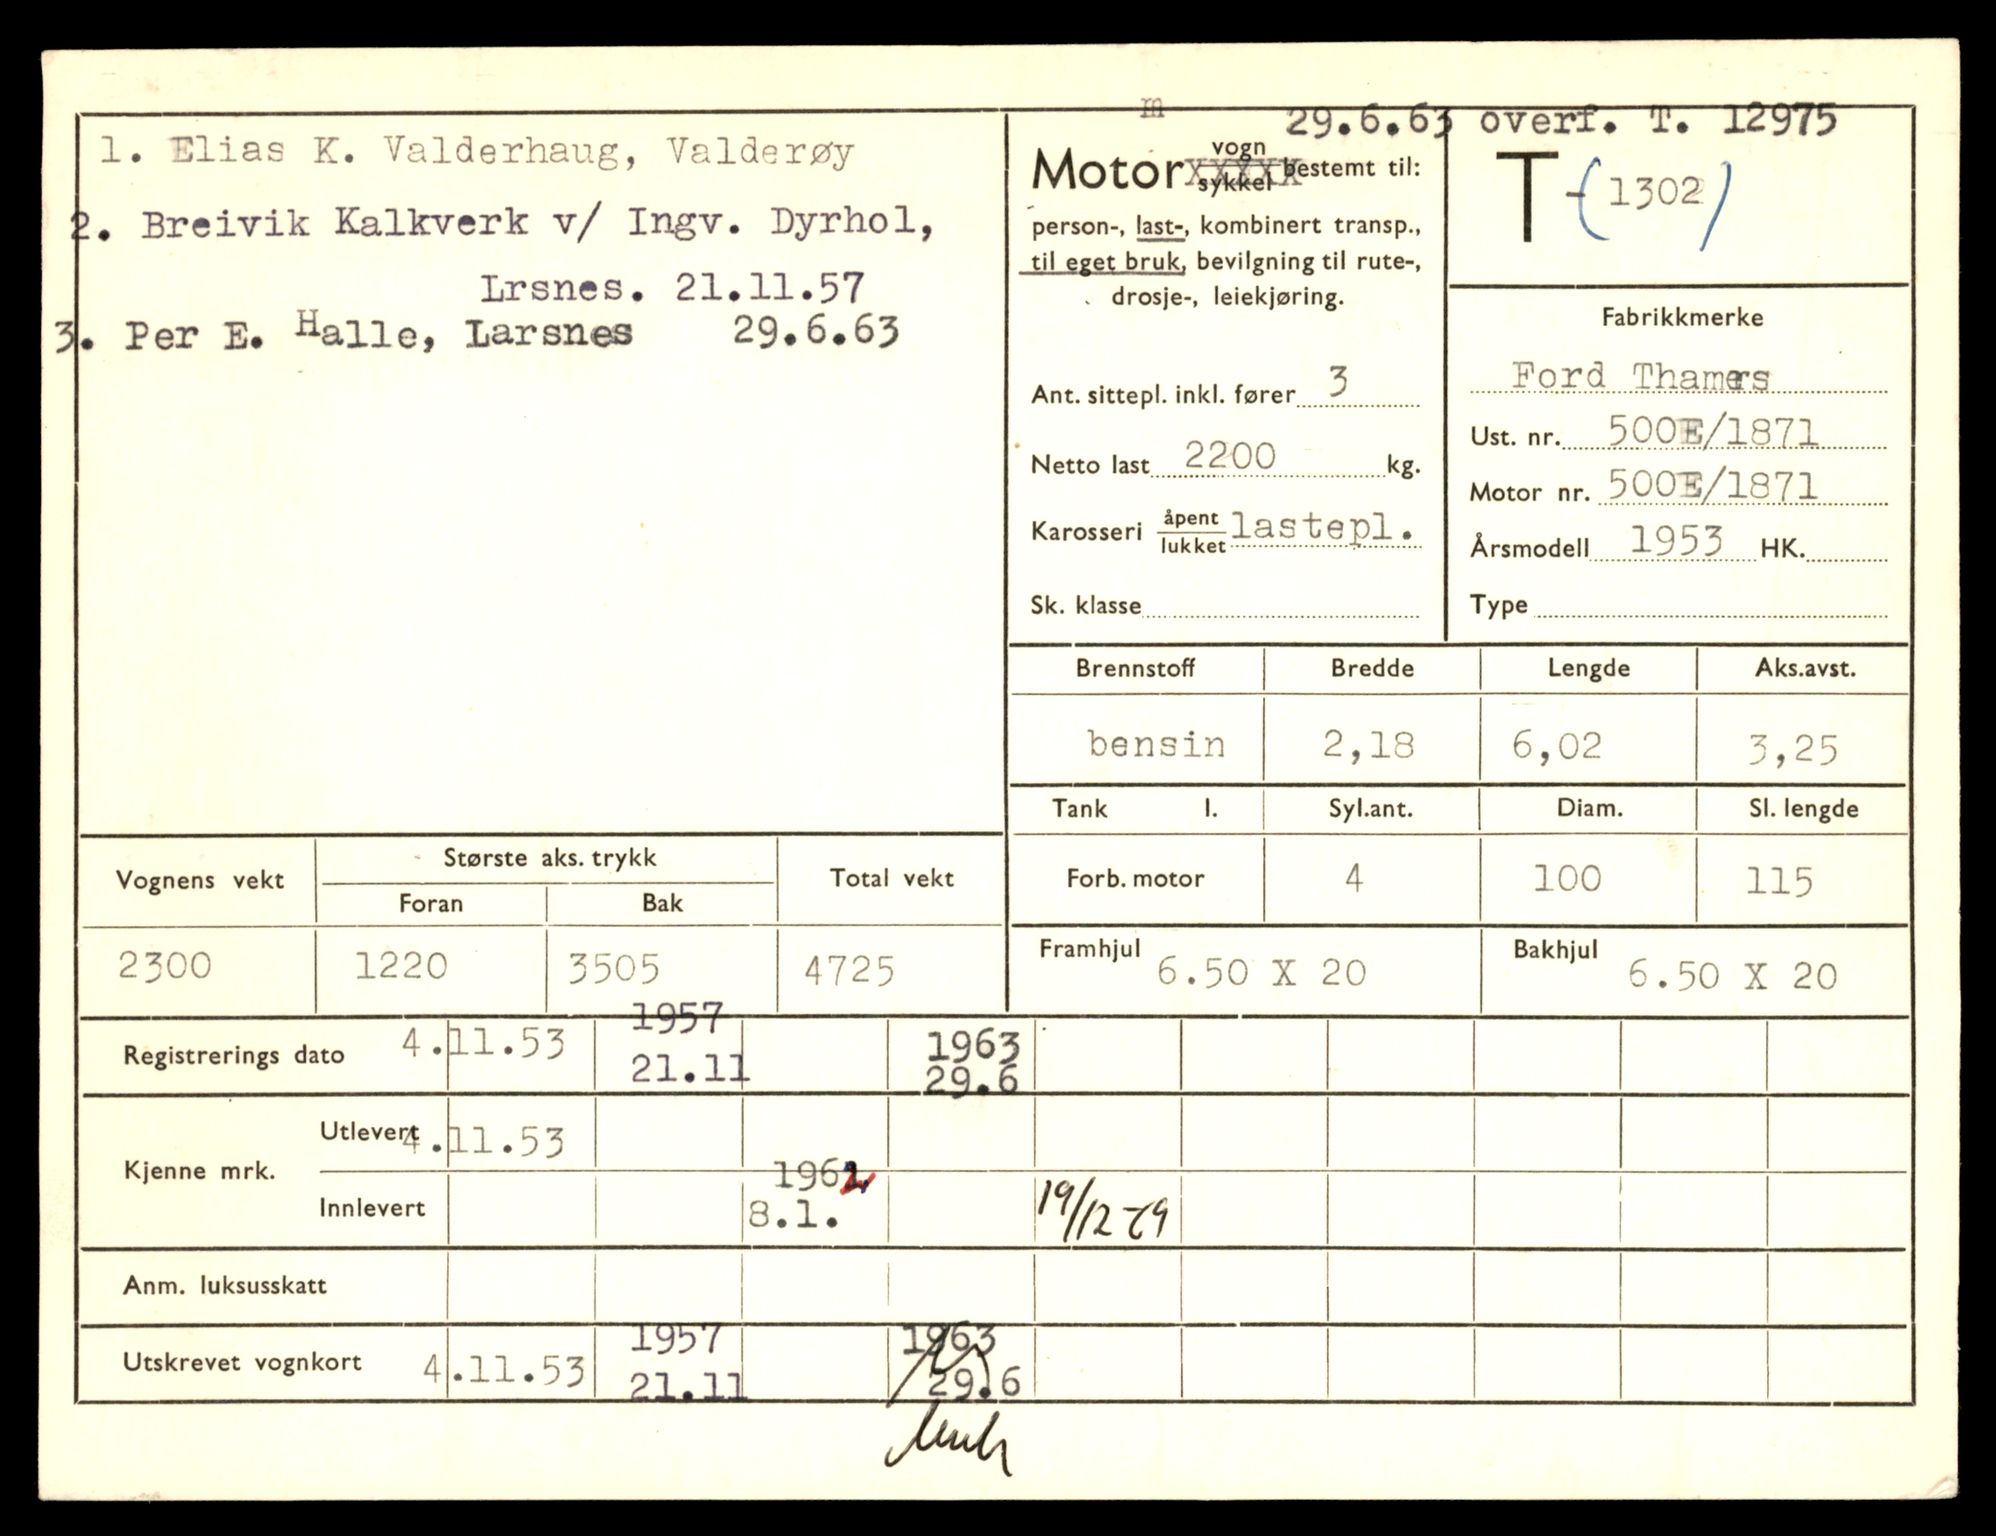 1. Elias K. Valderhaug, Valderøy
2. Breivik Kalkverk v/ Ingv. Dyrhol,
Lrsnes. 21.11.57
3. Per E. Halle, Larsnes 29.6.63
m
29.6.63 overf. T. 12975
Motor vogn sykkel bestemt til:
person-, last-, kombinert transp.,
til eget bruk, bevilgning til rute-,
drosje-, leiekjøring.
Ant. sittepl. inkl. fører 3
Netto last 2200 kg.
Karosseri åpent lukket lastepl.
Sk. klasse
T-(1302)
Fabrikkmerke
Ford Thamers
Ust. nr. 500E/1871
Motor nr. 500E/1871
Årsmodell 1953 HK.
Type
Brennstoff Bredde Lengde Aks.avst.
bensin 2,18 6,02 3,25
Tank l. Syl.ant. Diam. Sl. lengde
Forb. motor 4 100 115
Framhjul 6.50 X 20 Bakhjul 6.50 X 20
Vognens vekt Største aks. trykk Total vekt
Foran Bak
2300 1220 3505 4725
1957
Registrerings dato 4.11.53 21.11 1963 29.6
Kjenne mrk.
Utlevert 4.11.53
1962
Innlevert 8.1. 19/12-79
Anm. luksusskatt
1957 1963
Utskrevet vognkort 4.11.53 21.11 29.6